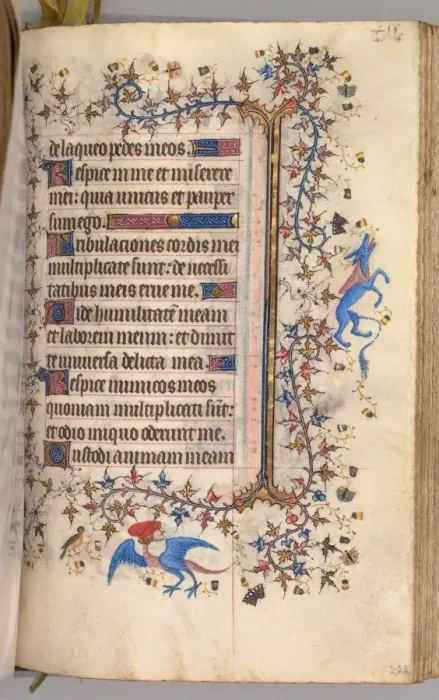 de laqueo pedes meos.
Respice in me et miserere
mei: quia unicus et pauper
sum ego.
Tribulationes cordis mei
multiplicate sunt: de necessi
tatibus meis erue me.
Vide humilitatē meam
et laborem meum: et dimit
te universa delicta mea.
Respice inimicos meos
quoniam multiplicati sūt:
et odio iniquo oderunt me.
Custodi animam meam